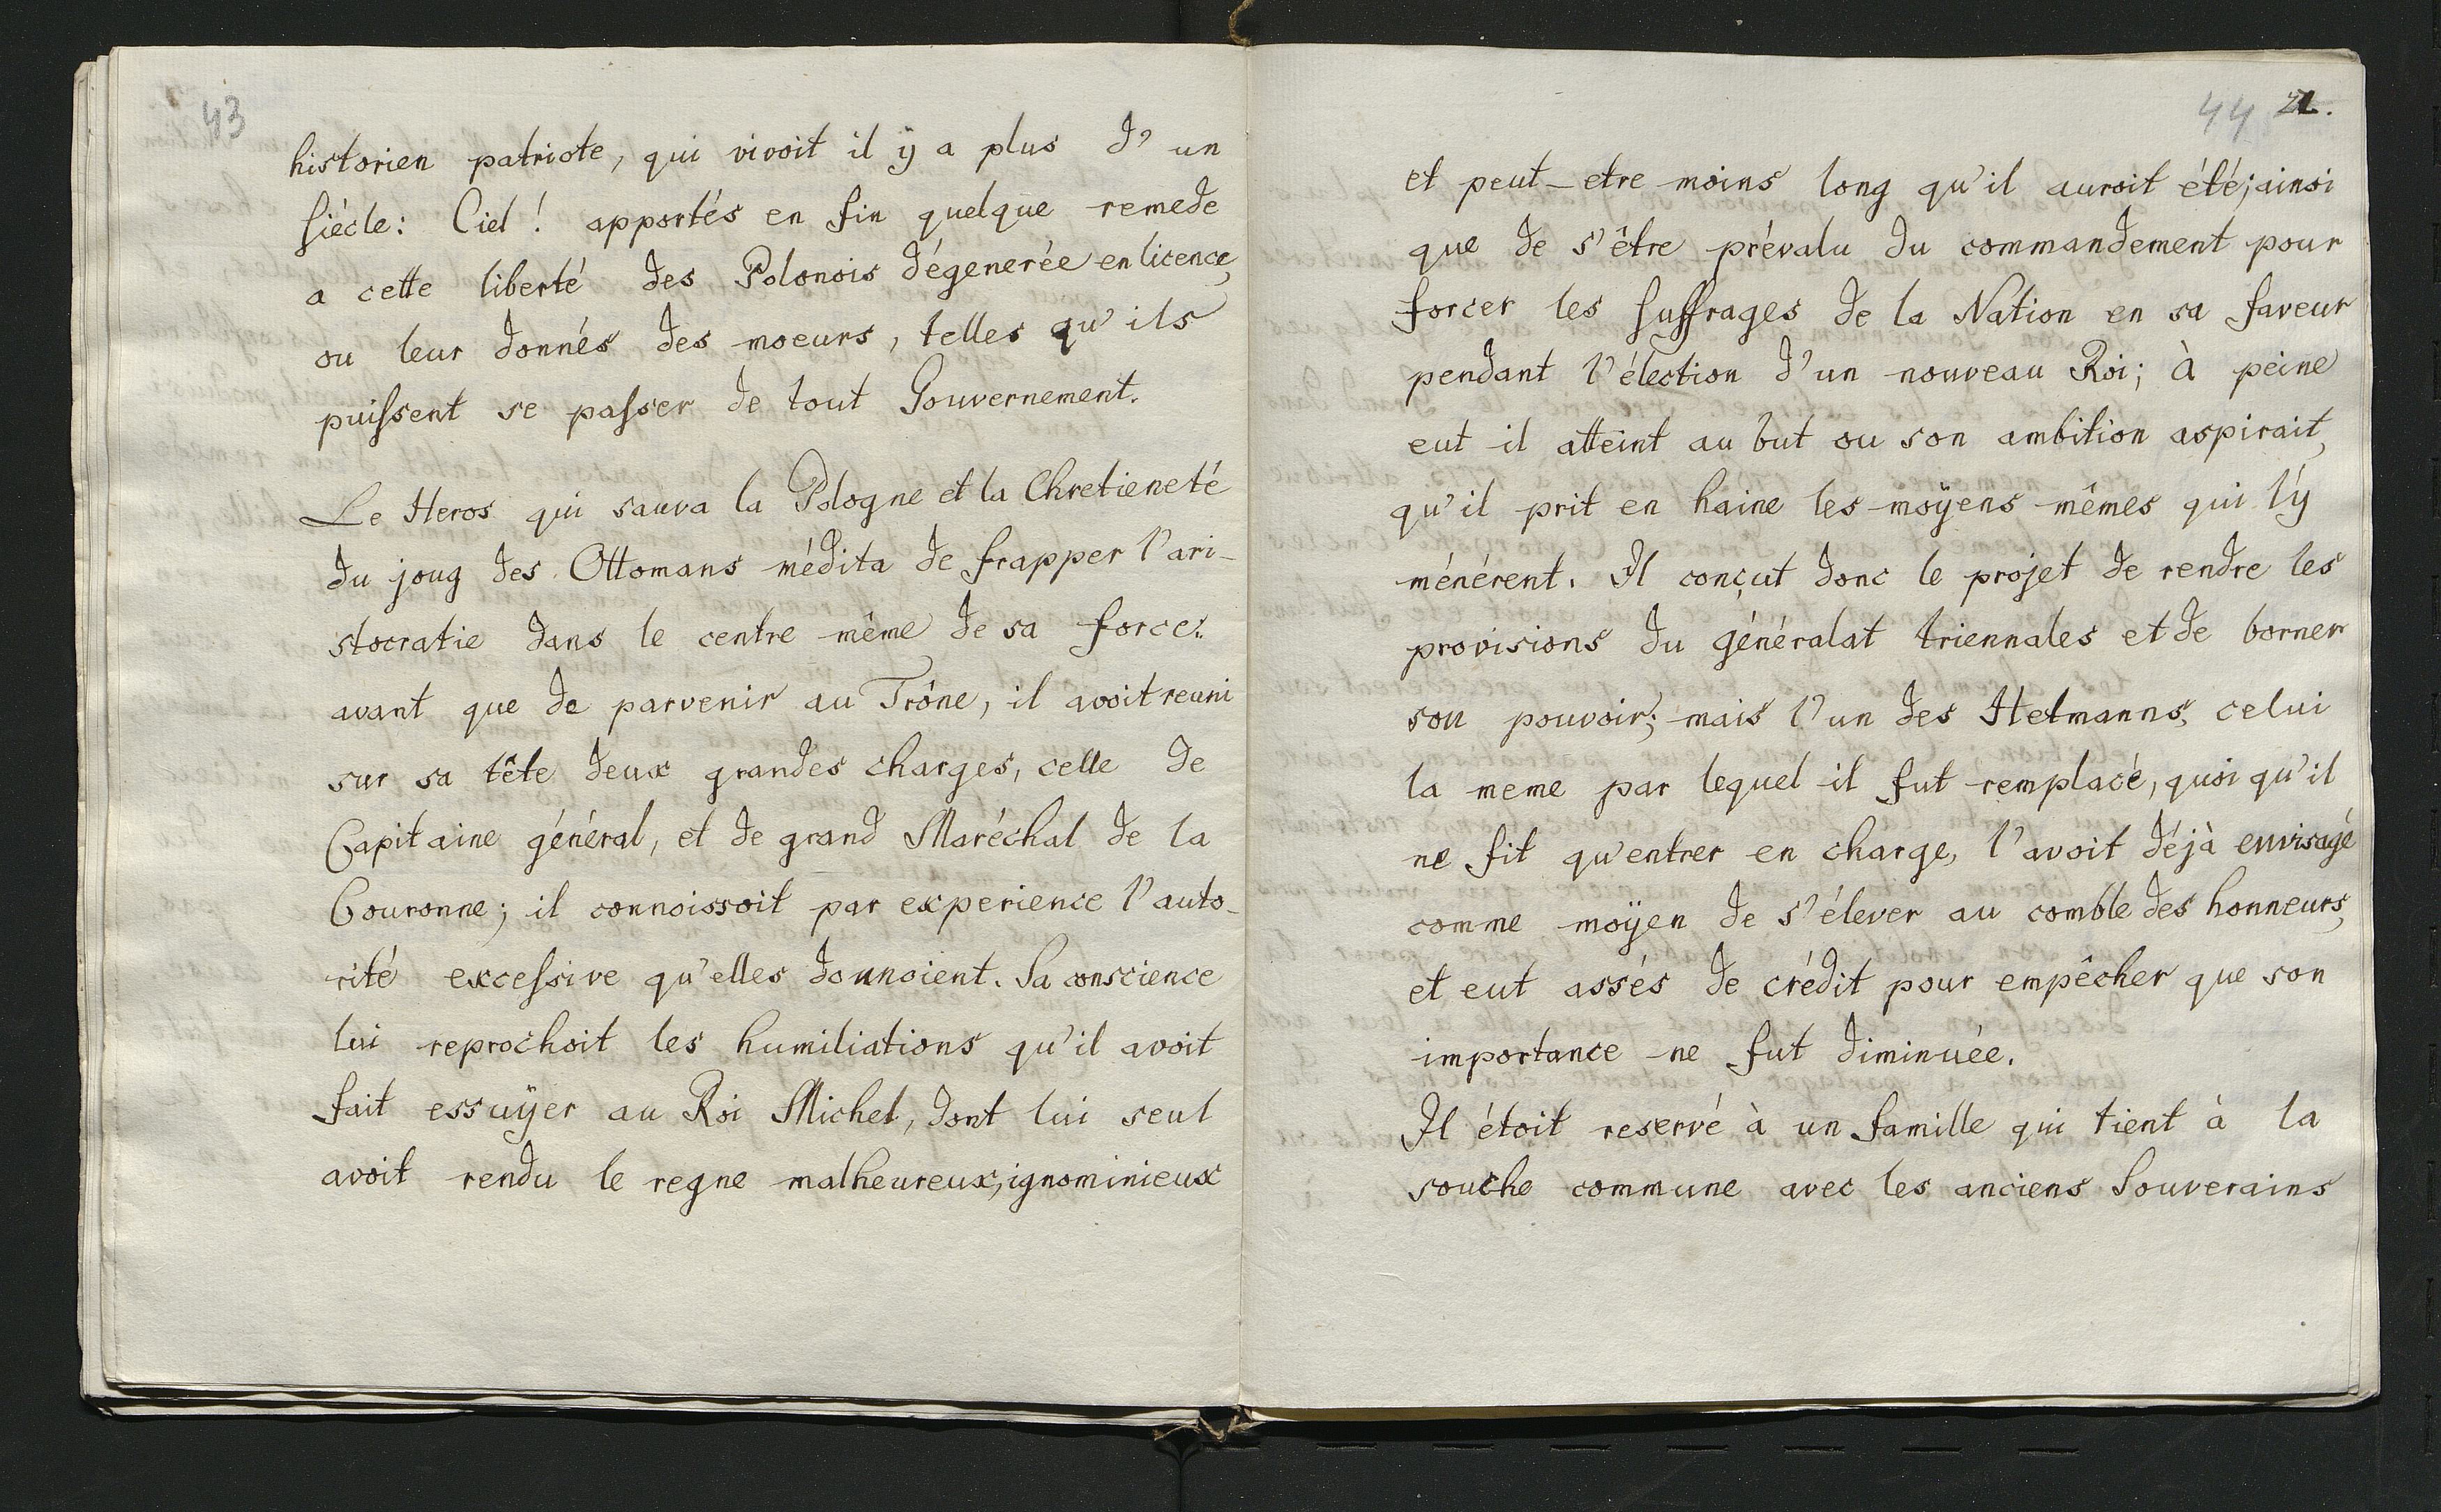 43
historien patriote, qui vivoit il ÿ a plus d'un
siécle: Ciel! apportés en fin quelque remede
a cette liberté des Polonois dégenerée en licence,
ou leur donnés des moeurs, telles qu'ils
puissent se passer de tout Gouvernement.
Le Heros qui sauva la Pologne et la Chretieneté
du joug des Ottomans médita de frapper l'ari-
stocratie dans le centre même de sa force.
avant que de parvenir au Trône, il avoit reuni
sur sa tête deux grandes charges, celle de
Capitaine général, et de grand Maréchal de la
Couronne; il connoissoit par experience l'auto-
rité excessive qu'elles donnoient. Sa conscience
lui reprochoit les humiliations qu'il avoit
fait essuÿer au Roi Michel, dont lui seul
avoit rendu le regne malheureux, ignominieux
44 22.
et peut-etre moins long qu'il auroit été; ainsi
que de s'être prévalu du commandement pour
forcer les suffrages de la Nation en sa faveur
pendant l'élection d'un nouveau Roi; à peine
eut il atteint au but ou son ambition aspirait,
qu'il prit en haine les moÿens mêmes qui l'y
ménérent. Il conçut donc le projet de rendre les
provisions du généralat triennales et de borner
son pouvoir; mais l'un des Hetmanns, celui
la meme par lequel il fut remplacé, quoi qu'il
ne fit qu'entrer en charge, l'avoit déjà envisagé
comme moÿen de s'élever au comble des honneurs,
et eut assés de crédit pour empêcher que son
importance ne fut diminuée.
Il étoit reservé à un famille qui tient à la
souche commune avec les anciens Souverains